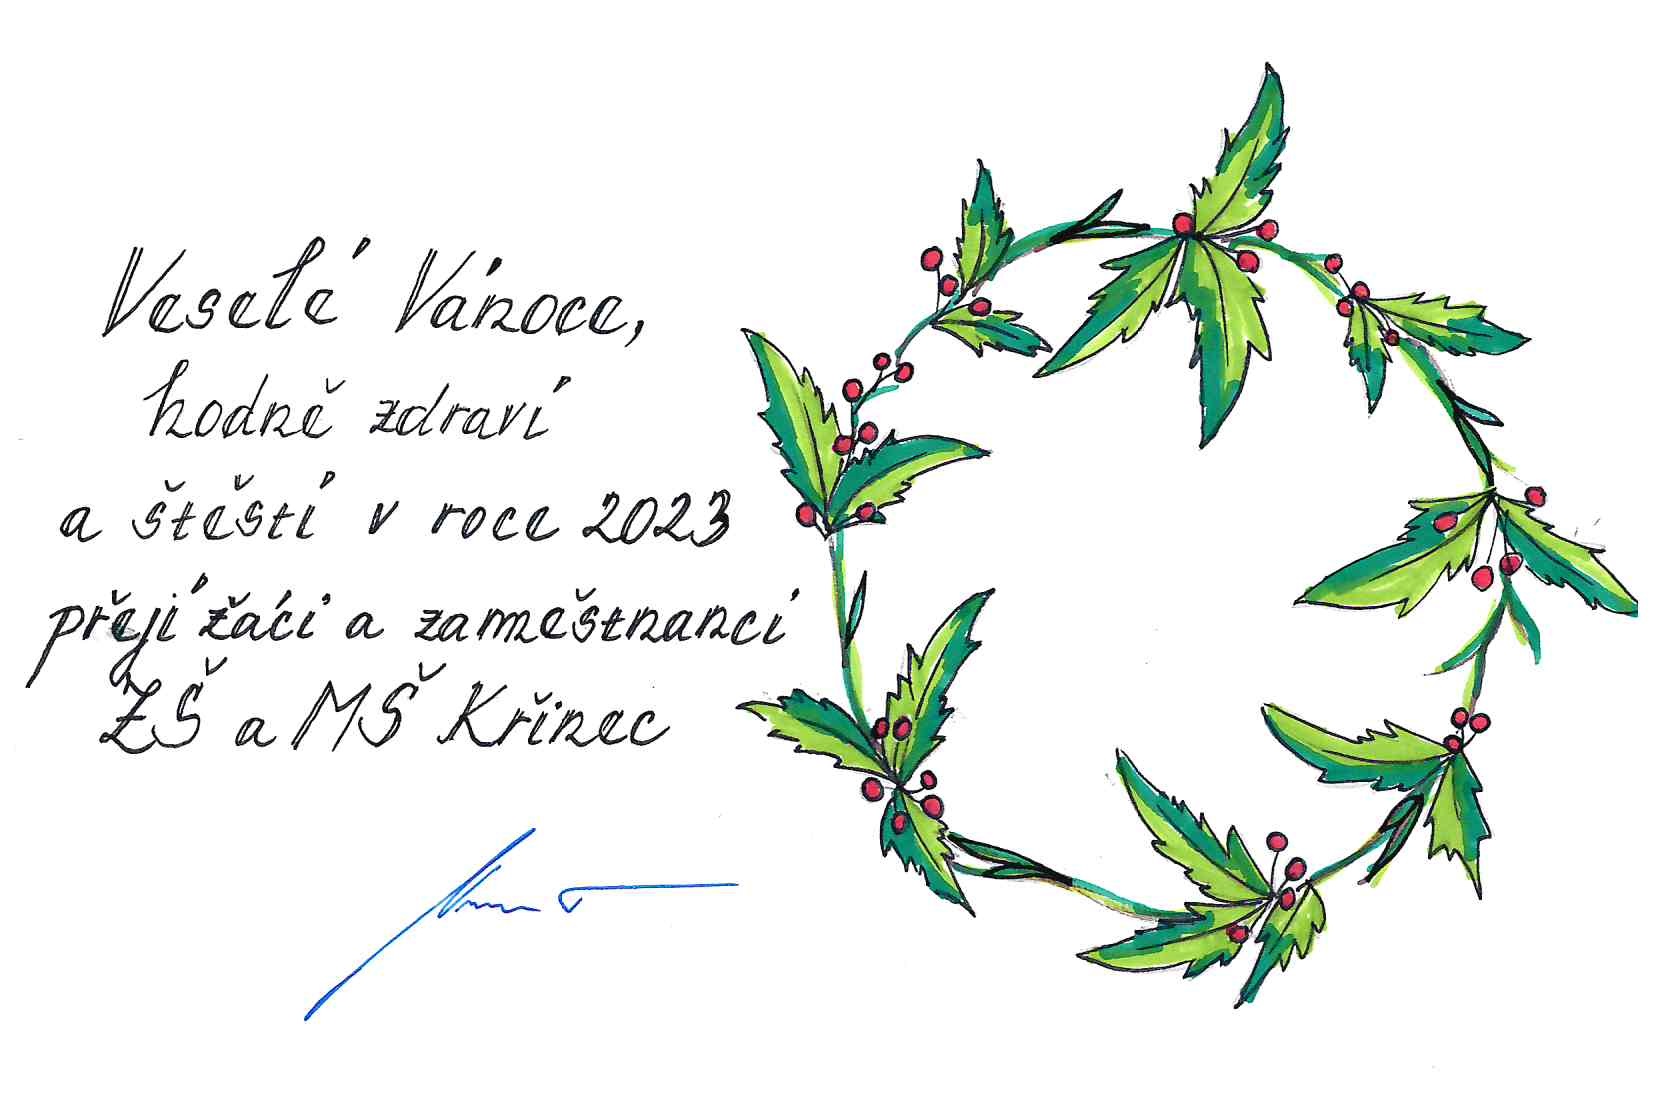 Veselé Vánoce,
hodně zdraví
a štěstí v roce 2023
přejí žáci a zaměstnanci
ZŠ a MŠ Křinec